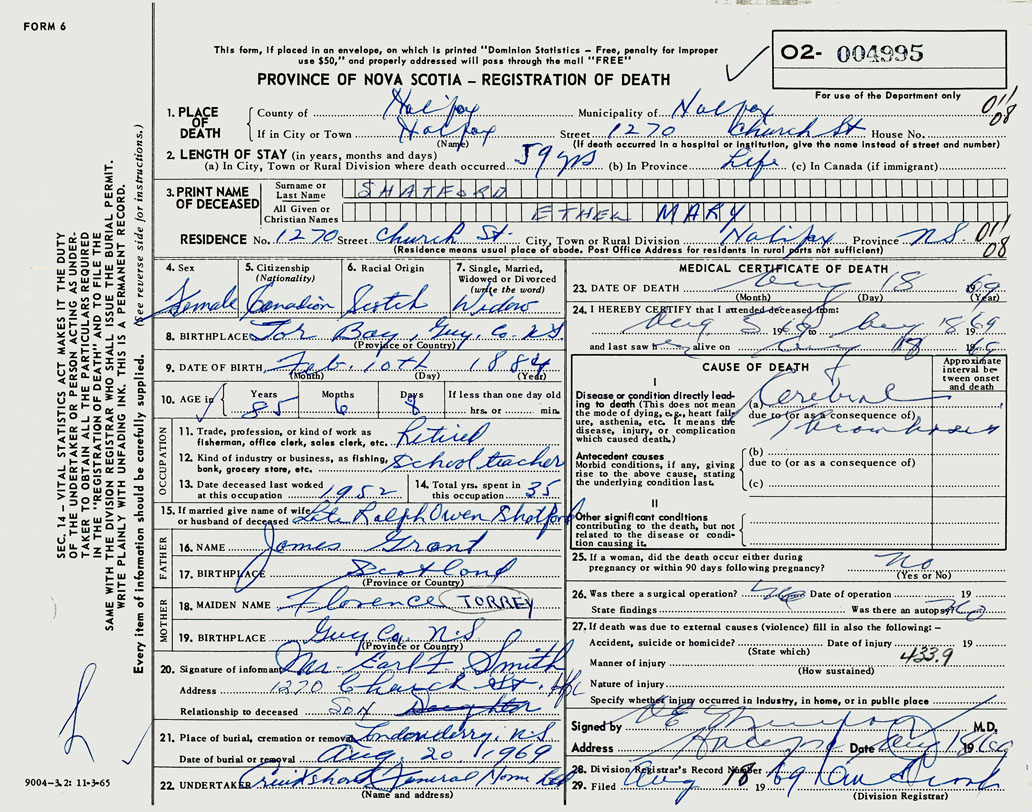 FORM 6
This form, if placed in an envelope, on which is printed "Dominion Statistics — Free, penalty for improper
use $50," and properly addressed will pass through the mail "FREE"
PROVINCE OF NOVA SCOTIA – REGISTRATION OF DEATH
02- 004995
For use of the Department only
1. PLACE OF DEATH
County of Halifax Municipality of Halifax 011/08
If in City or Town Halifax Street 1270 Church St House No.
(Name) (If death occurred in a hospital or institution, give the name instead of street and number)
2. LENGTH OF STAY (in years, months and days)
(a) In City, Town or Rural Division where death occurred 59 yrs (b) In Province Life (c) In Canada (if immigrant)
3. PRINT NAME OF DECEASED
Surname or Last Name SHATFORD
All Given or Christian Names ETHEL MARY
RESIDENCE No. 1270 Street Church St. City, Town or Rural Division Halifax Province N.S. 011/08
(Residence means usual place of abode. Post Office Address for residents in rural parts not sufficient)
4. Sex Female
5. Citizenship (Nationality) Canadian
6. Racial Origin Scotch
7. Single, Married, Widowed or Divorced (write the word) Widow
8. BIRTHPLACE Tor Bay, Guy. Co. N.S.
(Province or Country)
9. DATE OF BIRTH Feb. 10th 1884
(Month) (Day) (Year)
10. AGE in Years 85 Months 6 Days 8 If less than one day old hrs. or min.
OCCUPATION
11. Trade, profession, or kind of work as fisherman, office clerk, sales clerk, etc. Retired
12. Kind of industry or business, as fishing, bank, grocery store, etc. School teacher
13. Date deceased last worked at this occupation 1952
14. Total yrs. spent in this occupation 35
15. If married give name of wife or husband of deceased Late Ralph Owen Shatford
FATHER
16. NAME James Grant
17. BIRTHPLACE Scotland
(Province or Country)
MOTHER
18. MAIDEN NAME Florence TORREY
19. BIRTHPLACE Guy Co. N.S
(Province or Country)
20. Signature of informant Mr. Earl F. Smith
Address 1270 Church St. Hfx
Relationship to deceased Son Daughter
21. Place of burial, cremation or removal Londonderry, N.S
Date of burial or removal Aug. 20, 1969
22. UNDERTAKER Cruikshank Funeral Home Ltd
(Name and address)
MEDICAL CERTIFICATE OF DEATH
23. DATE OF DEATH Aug 18 1969
(Month) (Day) (Year)
24. I HEREBY CERTIFY that I attended deceased from:
Aug 5 1969 to Aug 18 1969
and last saw h alive on Aug 18 1969
CAUSE OF DEATH
Approximate interval between onset and death
I
Disease or condition directly leading to death (This does not mean the mode of dying, e.g., heart failure, asthenia, etc. It means the disease, injury, or complication which caused death.)
(a) Cerebral
due to (or as a consequence of)
Thrombosis
Antecedent causes
Morbid conditions, if any, giving rise to the above cause, stating the underlying condition last.
(b)
due to (or as a consequence of)
(c)
II
Other significant conditions
contributing to the death, but not related to the disease or condition causing it.
25. If a woman, did the death occur either during pregnancy or within 90 days following pregnancy? No
(Yes or No)
26. Was there a surgical operation? No Date of operation 19
State findings Was there an autopsy? No
27. If death was due to external causes (violence) fill in also the following: –
Accident, suicide or homicide? Date of injury 19
(State which) 433.9
Manner of injury
(How sustained)
Nature of injury
Specify whether injury occurred in industry, in home, or in public place
Signed by M.D.
Address Halifax Date Aug 19 1969
28. Division Registrar's Record Number
29. Filed Aug 18 1969
(Division Registrar)
SEC. 14 – VITAL STATISTICS ACT MAKES IT THE DUTY
OF THE UNDERTAKER OR PERSON ACTING AS UNDER-
TAKER TO OBTAIN ALL THE PARTICULARS REQUIRED
IN THE "REGISTRATION OF DEATH" AND TO FILE THE
SAME WITH THE DIVISION REGISTRAR WHO SHALL ISSUE THE BURIAL PERMIT.
WRITE PLAINLY WITH UNFADING INK. THIS IS A PERMANENT RECORD.
Every item of information should be carefully supplied. (See reverse side for instructions.)
9004-3.2: 11-3-65